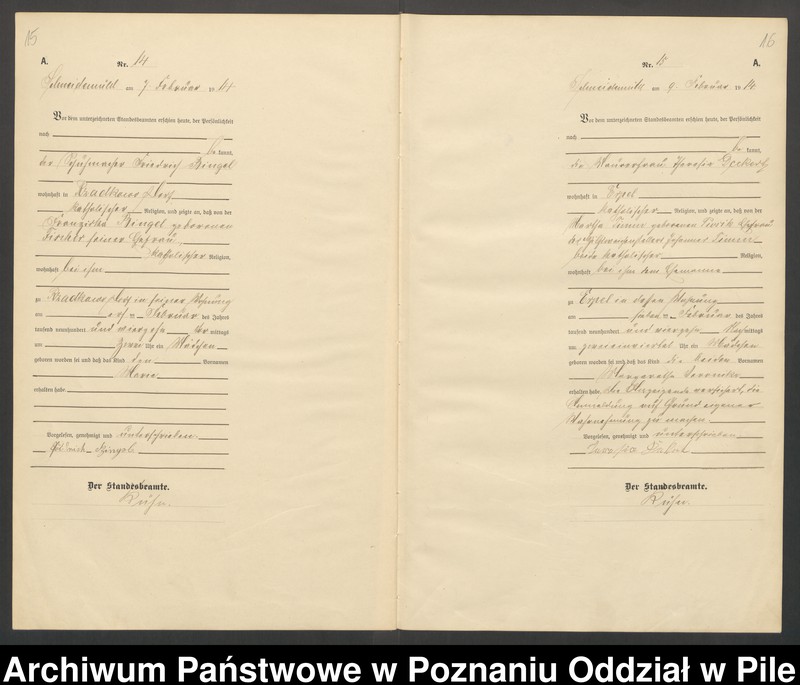 15
A.
Nr. 14
Schneidemühl am 7. Februar 1914
Vor dem unterzeichneten Standesbeamten erschien heute, der Persönlichkeit
nach
be kannt,
der Schuhmacher Friedrich Ringel
wohnhaft in
katholischer Religion, und zeigte an, daß von der
Franziska Ringel geborenen
Fischer seiner Ehefrau
katholischer Religion,
wohnhaft bei ihm
zu in seiner Wohnung
am Februar des Jahres
tausend neunhundert und vierzehn vor mittags
um Uhr ein Mädchen
geboren worden sei und daß das Kind den Vornamen
Maria
erhalten habe
Vorgelesen, genehmigt und unterschrieben
Friedrich Ringel
Der Standesbeamte.
16
Nr. 15
A.
Schneidemühl am 9. Februar 1914
Vor dem unterzeichneten Standesbeamten erschien heute, der Persönlichkeit
nach
be kannt,
die Maurerfrau
wohnhaft in Erpel
katholischer Religion, und zeigte an, daß von der
Martha geborenen Ehefrau
des Johannes
beide katholischer Religion,
wohnhaft bei ihrem Ehemanne
zu Erpel in dessen Wohnung
am Februar des Jahres
tausend neunhundert und vierzehn Nachmittags
um Uhr ein Mädchen
geboren worden sei und daß das Kind die beiden Vornamen
Margaretha Veronika
erhalten habe. Die Anzeigende versichert, die
Anmeldung auf Grund eigener
Wahrnehmung zu machen.
Vorgelesen, genehmigt und unterschrieben
Der Standesbeamte.
Archiwum Państwowe w Poznaniu Oddział w Pile